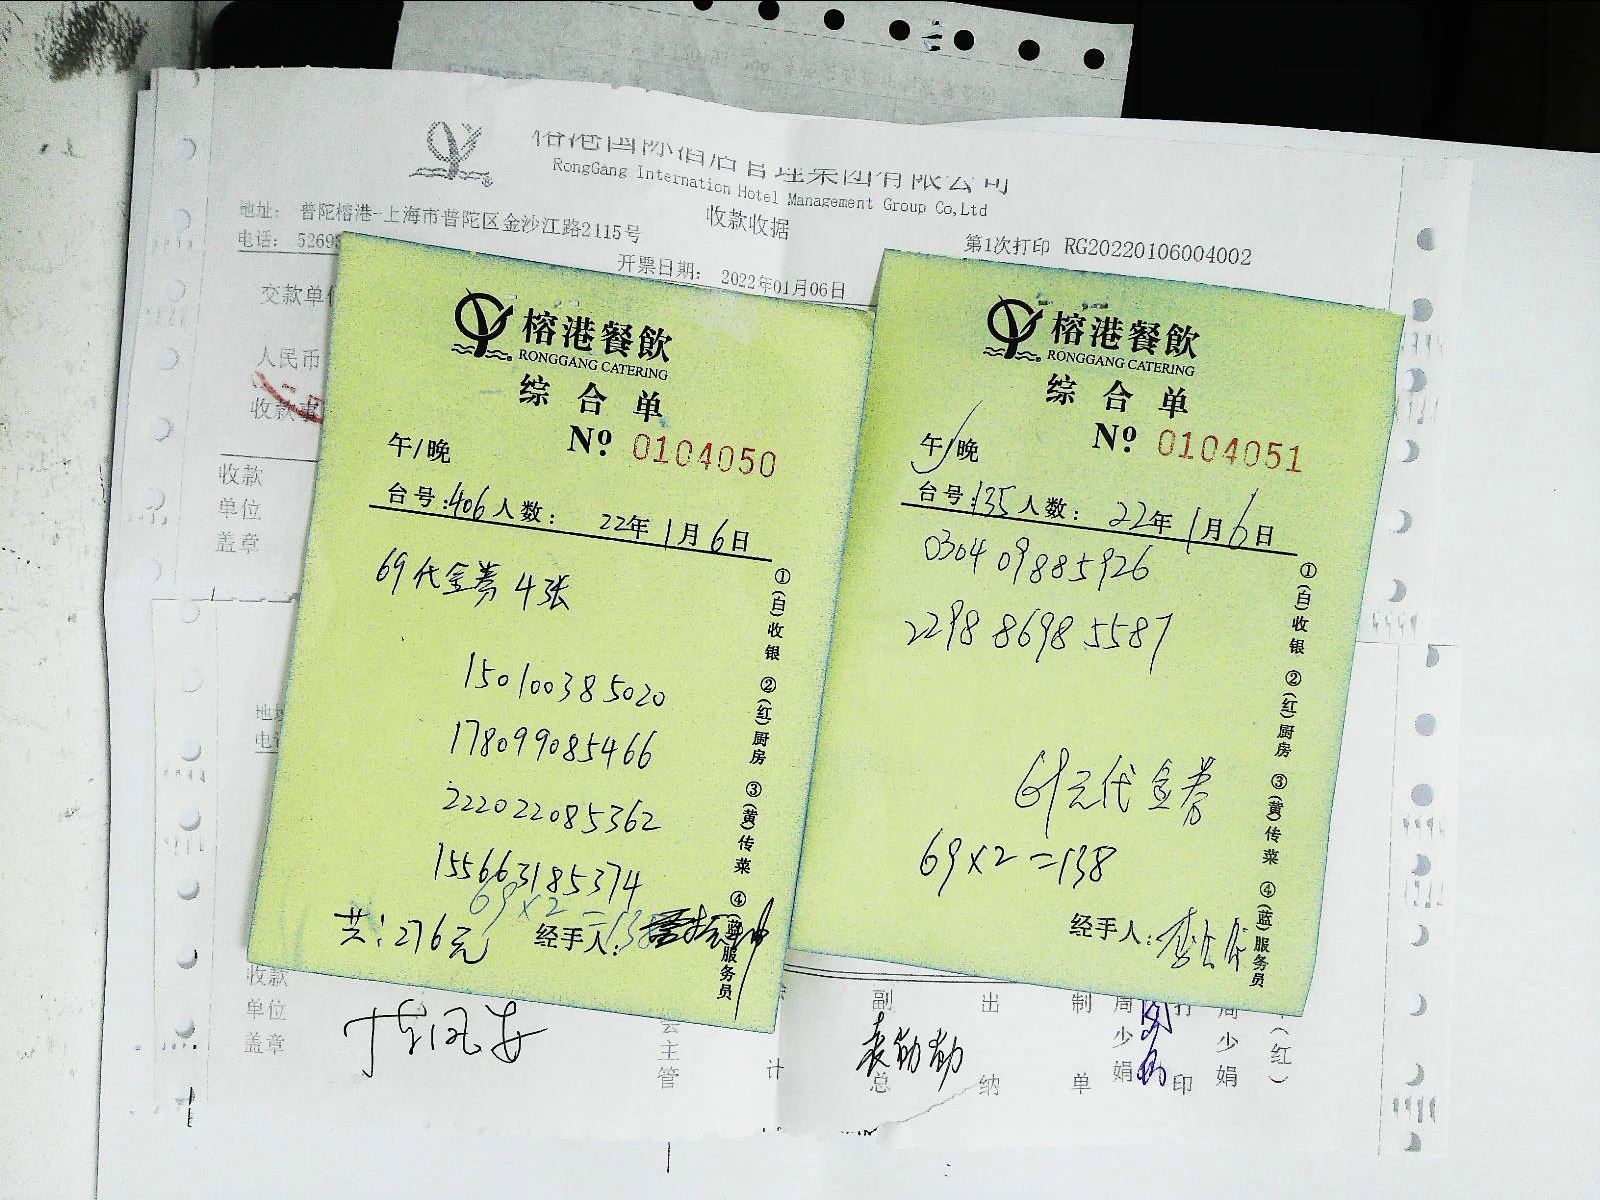 榕港国际酒店管理集团有限公司
RongGang Internation Hotel Management Group Co,Ltd
地址: 普陀榕港-上海市普陀区金沙江路2115号
收款收据
电话: 5269
第1次打印 RG20220106004002
开票日期: 2022年01月06日
交款单位
人民币
收款事
收款
单位
盖章
榕港餐飲
RONGGANG CATERING
综合单
午/晚
Nº 0104050
台号:406 人数: 22年1月6日
69代金券4张
150100385020
178099085466
222022085362
155663185374
69×2=138
共:276元
经手人:
①(白)收银 ②(红)厨房 ③(黄)传菜 ④(蓝)服务员
榕港餐飲
RONGGANG CATERING
综合单
午/晚
Nº 0104051
台号:135 人数: 22年1月6日
0304 09885926
2298 8698 5587
69元代金券
69×2=138
经手人:
①(白)收银 ②(红)厨房 ③(黄)传菜 ④(蓝)服务员
地址
电话
收款
单位
盖章
会主管
计
副总
出纳
制单
周少娟
打印
周少娟
(红)